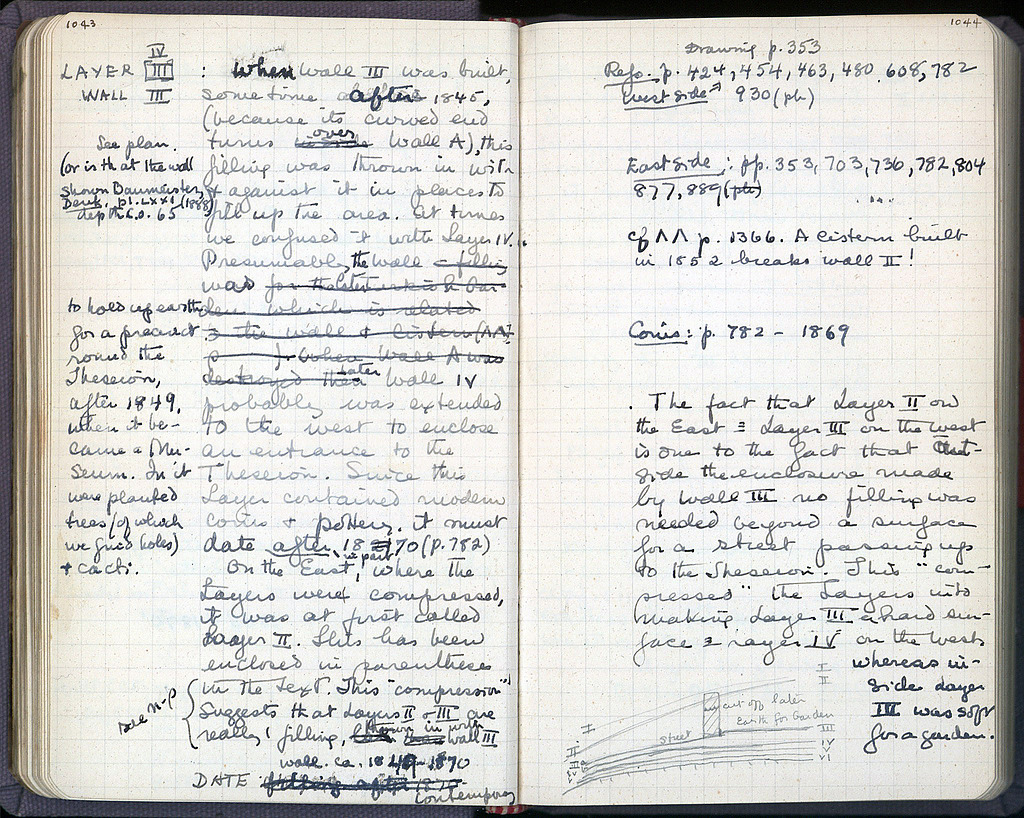 1043
IV
LAYER III : When wall III was built,
WALL III sometime after 1845,
(because its curved end
turns over wall A), this
filling was thrown in with
& against it in places to
fill up the area. At times
we confused it with Layer IV.
Presumably, the wall filling
was for the
which is related
the wall & cistern (ΛΛ,
p ) when Wall A was
destroyed then later Wall IV
probably was extended
to the west to enclose
an entrance to the
Theseion. Since this
Layer contained modern
coins & pottery, it must
date after 1870 (p. 782)
On the East, in part, where the
Layers were compressed,
it was at first called
Layer II. This has been
enclosed in parentheses
in the text. This "compression"
suggests that Layers II & III are
really filling, thrown in with wall III
wall. ca. 1849-1870
DATE filling after 1870
contemporary
See plan.
(or is it at the wall
shown Baumeister,
Denk., pl. LXXI (1888)
depth c. 0.65
to hold up earth
for a precinct
round the
Theseion,
after 1849,
when it be-
came a Mu-
seum. In it
were planted
trees (of which
we find holes)
& cacti.
see n-p
1044
Drawing p. 353
Refs. p. 424, 454, 463, 480, 608, 782
West side 930 (ph)
East side : pp. 353, 703, 736, 782, 804
877, 889 (ph)
cf ΛΛ p. 1366. A cistern built
in 1852 breaks wall II!
Coins: p. 782 - 1869
. The fact that Layer II on
the East = Layer III on the west
is due to the fact that out-
side the enclosure made
by wall III no filling was
needed beyond a surface
for a street passing up
to the Theseion. This "com-
pressed" the Layers into
making Layer III a hard sur-
face = Layer IV on the West
whereas in-
side Layer
III was soft
for a garden.
I
II
cut off later
Earth for Garden
street
III
IV
V
VI
I
II